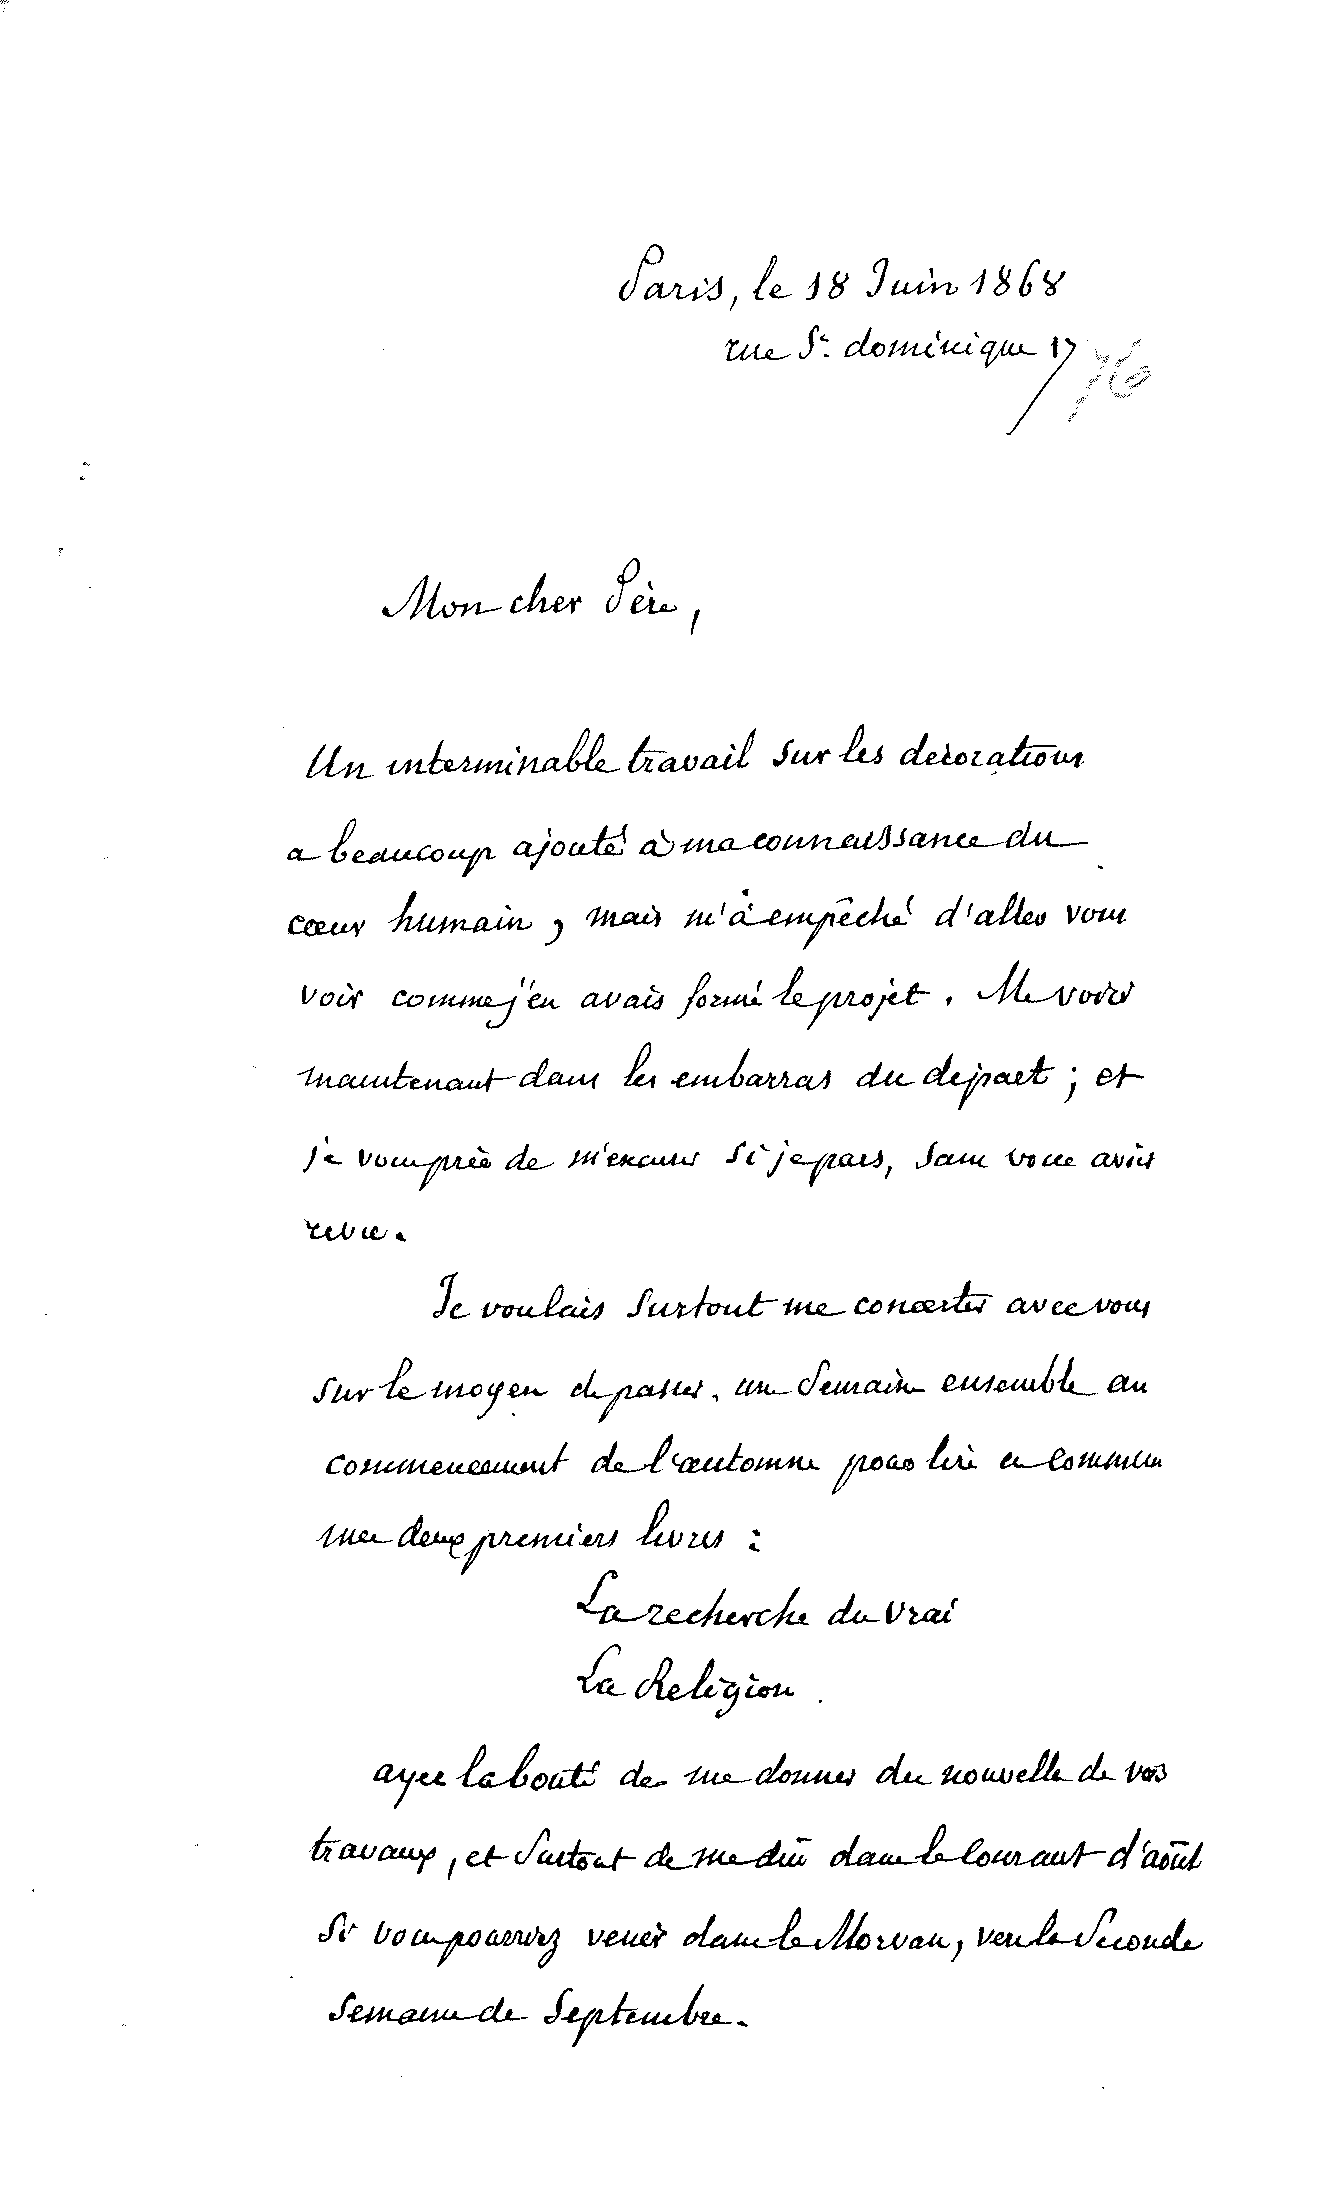 Paris, le 18 Juin 1868
rue St. dominique 17
76
Mon cher Père,
Un interminable travail sur les décorations
a beaucoup ajouté à ma connaissance du
cœur humain, mais m'a empêché d'aller vous
voir comme j'en avais formé le projet. Me voici
maintenant dans les embarras du départ ; et
je vous prie de m'excuser si je pars, sans vous avoir
revu.
Je voulais surtout me concerter avec vous
sur le moyen de passer, une semaine ensemble au
commencement de l'automne pour lire en commun
mes deux premiers livres :
La recherche du vrai
La Religion.
ayez la bonté de me donner des nouvelles de vos
travaux, et surtout de me dire dans le courant d'août
si vous pourriez venir dans le Morvan, vers la seconde
semaine de Septembre.